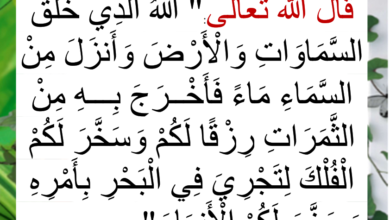 قال الله تعالى:" اللَّهُ الَّذِي خَلَقَ
السَّمَاوَاتِ وَالْأَرْضَ وَأَنزَلَ مِنْ
السَّمَاءِ مَاءً فَأَخْــرَجَ بِـــهِ مِنْ
الثَّمَرَاتِ رِزْقًا لَكُمْ وَسَخَّرَ لَكُمْ
الْفُلْكَ لِتَجْرِيَ فِي الْبَحْرِ بِأَمْرِهِ
وَسَخَّرَ لَكُمْ الْأَنهَارَ "